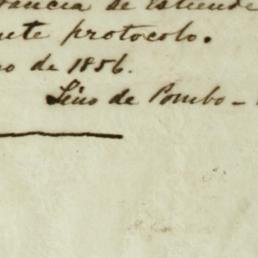 tancia se estiende
ente protocolo.
ro de 1856.
Lino de Pombo –